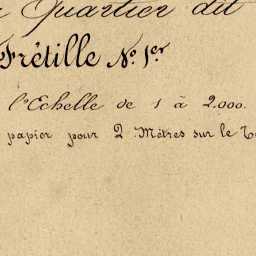 Quartier dit
Frétille No. 1er
l'Echelle de 1 à 2.000.
papier pour 2 Mètres sur le